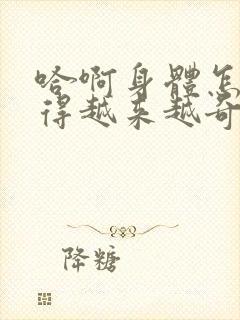 哈啊身體怎
得越来越奇
降糖